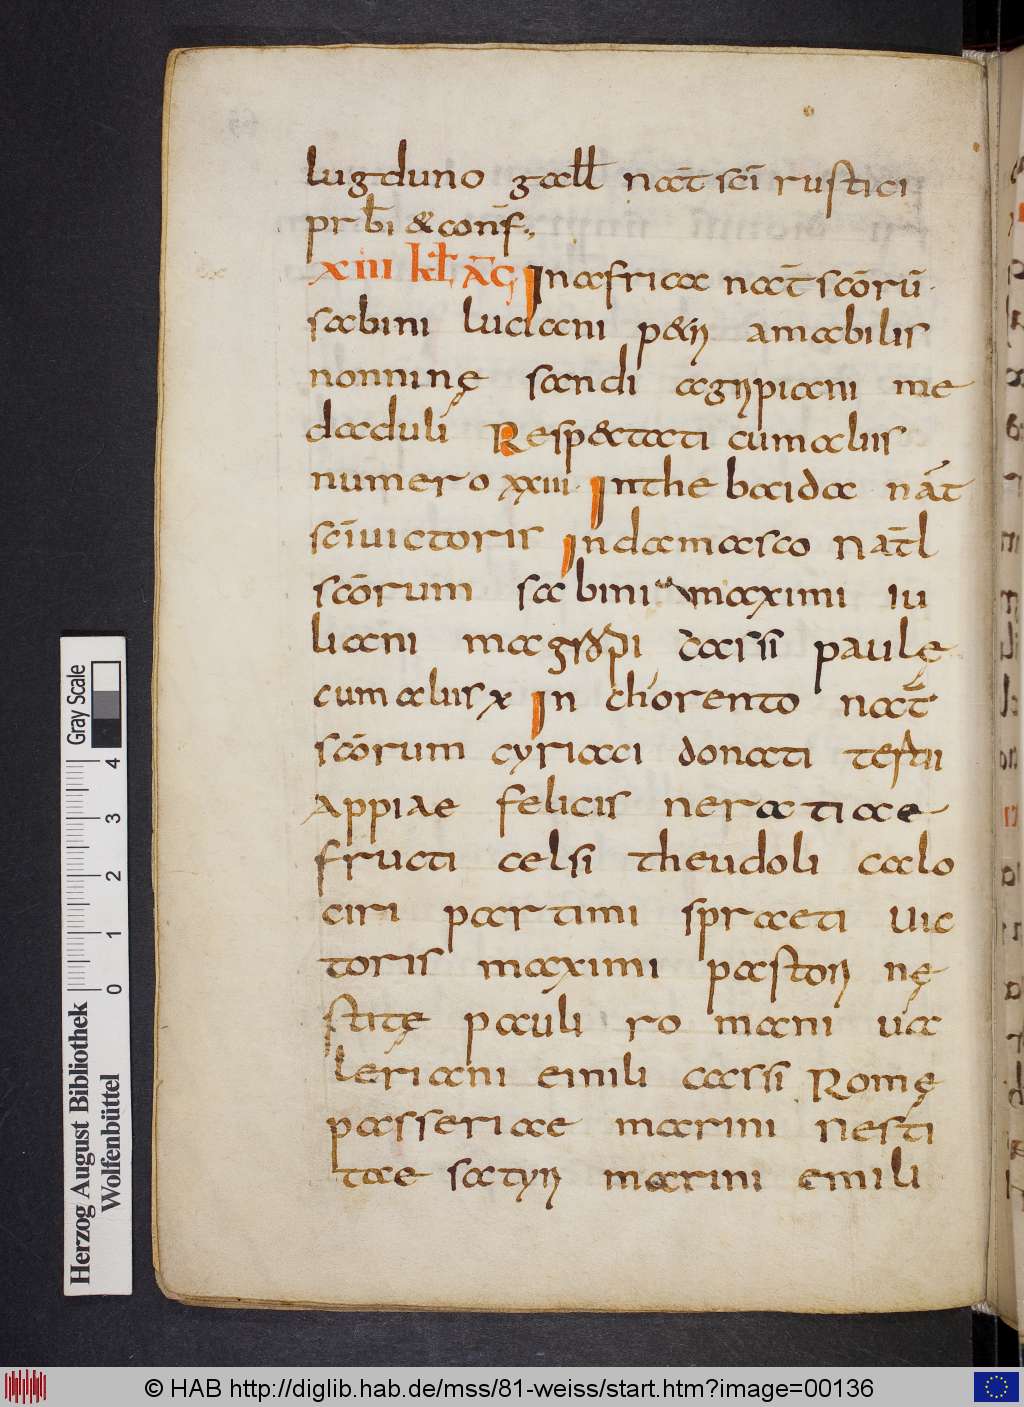 lugduno gall nat̄ sci̅ rustici
prb̅i & conf̅.,
XIII kł AḠ In africa nat̄ scōrū.
sabini luciani p&ri amabilis
nonninę sandi aegypiani me
daduli Resp&tati cum aliis
numero xxiii. In thebaida nat̄
sci̅ victoris In damasco Nat̄l
scōrum sabini maximi iu
liani cassi paulę
cum aliis x In chorento nat̄
scōrum cyriaci donati testii
Appiae felicis neratiae
fructi celsi theudoli calo
ciri partimi spraeti Uic
toris maximi pastori nę
stitę pauli romani ua
leriani emili cassi Romę
passeriae marini nesti
tae satyri marini emili
Gray Scale
4
3
2
1
0
Herzog August Bibliothek
Wolfenbüttel
© HAB http://diglib.hab.de/mss/81-weiss/start.htm?image=00136